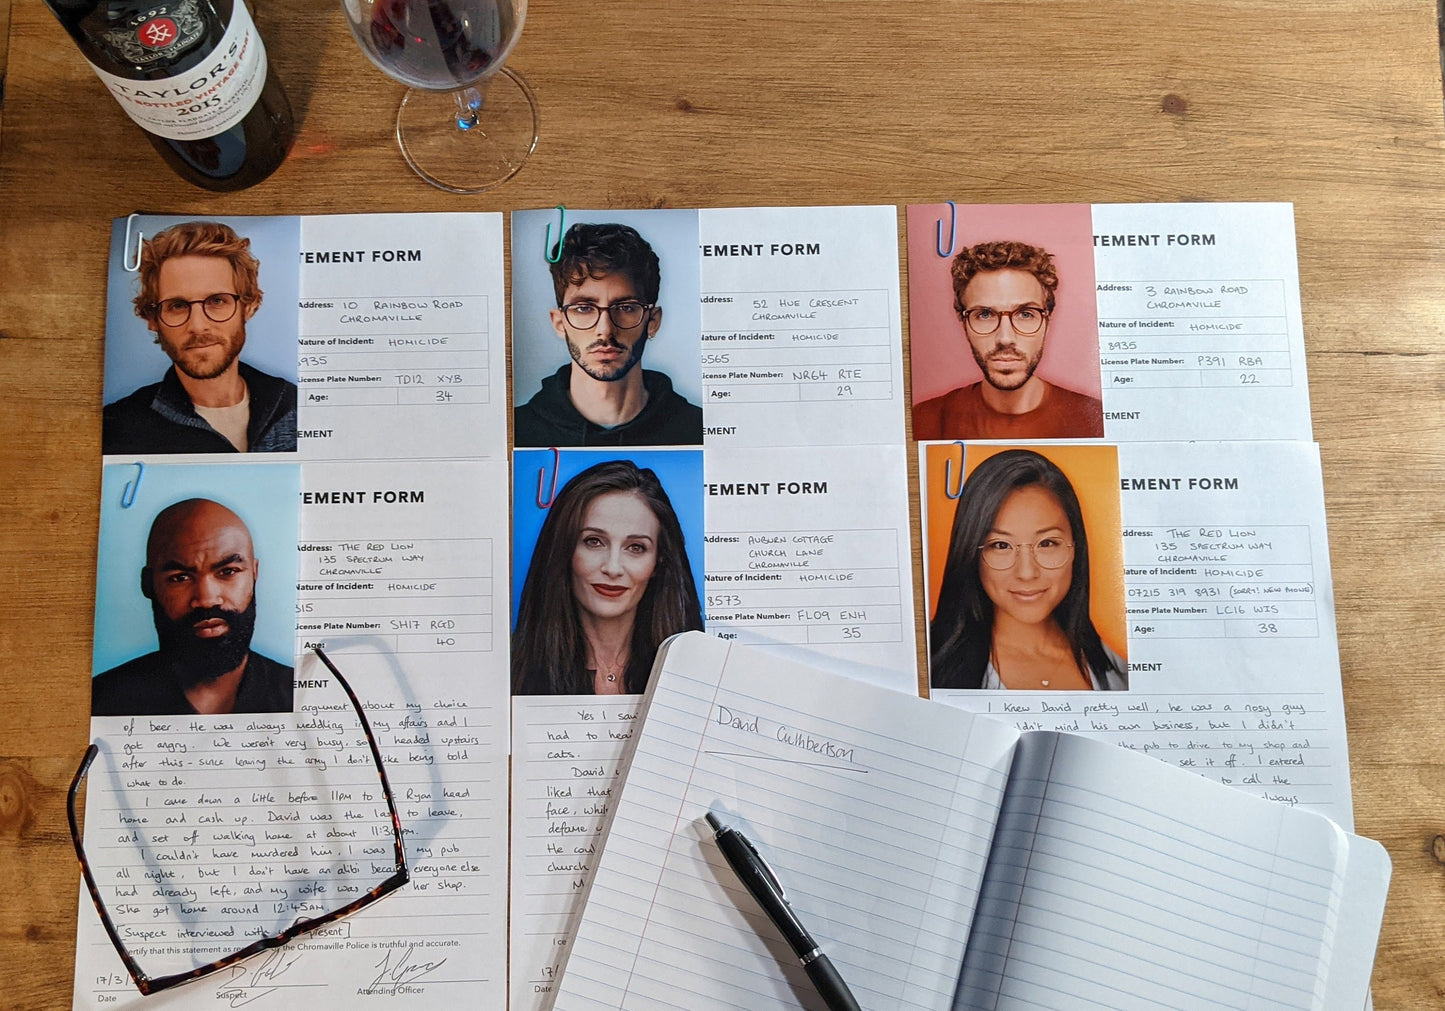 1692
TAYLOR'S
BOTTLED VINTAGE PORT
2015
TEMENT FORM
Address: 10 RAINBOW ROAD
CHROMAVILLE
Nature of Incident: HOMICIDE
8935
License Plate Number: TD12 XYB
Age: 34
EMENT
TEMENT FORM
Address: 52 HUE CRESCENT
CHROMAVILLE
Nature of Incident: HOMICIDE
6565
License Plate Number: NR64 RTE
Age: 29
EMENT
TEMENT FORM
Address: 3 RAINBOW ROAD
CHROMAVILLE
Nature of Incident: HOMICIDE
8935
License Plate Number: P391 RBA
Age: 22
EMENT
TEMENT FORM
Address: THE RED LION
135 SPECTRUM WAY
CHROMAVILLE
Nature of Incident: HOMICIDE
315
License Plate Number: SH17 RGD
Age: 40
EMENT
argument about my choice
of beer. He was always meddling in my affairs and I
got angry. We weren't very busy, so I headed upstairs
after this - since leaving the army I don't like being told
what to do.
I came down a little before 11pm to Ryan head
home and cash up. David was the last to leave,
and set off walking home at about 11:30pm.
I couldn't have murdered him, I was my pub
all night, but I don't have an alibi because everyone else
had already left, and my wife was her shop.
She got home around 12:45AM.
[Suspect interviewed with present]
ertify that this statement as re the Chromaville Police is truthful and accurate.
17/3/
Date Suspect Attending Officer
TEMENT FORM
Address: AUBURN COTTAGE
CHURCH LANE
CHROMAVILLE
Nature of Incident: HOMICIDE
8573
License Plate Number: FL09 ENH
Age: 35
Yes I saw
had to hea
cats.
David
liked that
face, whil
defame
He coul
church
M
I ce
17/
Date
TEMENT FORM
Address: THE RED LION
135 SPECTRUM WAY
CHROMAVILLE
Nature of Incident: HOMICIDE
07215 319 8931 (SORRY! NEW PHONE)
License Plate Number: LC16 WIS
Age: 38
EMENT
I knew David pretty well, he was a nosy guy
ldn't mind his own business, but I didn't
the pub to drive to my shop and
set it off. I entered
to call the
always
David Cuthbertson